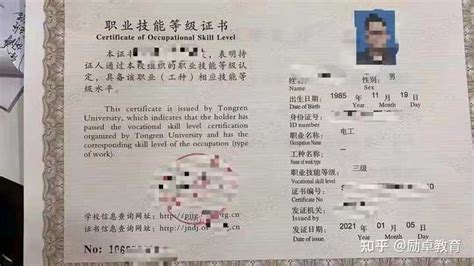 职业技能等级证书
Certificate of Occupational Skill Level
本证书 表明持
证人通过本 组织的职业技能等级认
定，具备该职业（工种）相应技能等
级水平。
This certificate is issued by Tongren
University, which indicates that the holder has
passed the vocational skill level certification
organized by Tongren University and has the
corresponding skill level of the occupation (type
of work).
学校信息查询网址：http://
证书信息查询网址：http://jndj.
No:
姓名
性别： 男
Sex
出生日期 1985 年 11 月 19 日
Date of Birth Year Month Day
身份证号
ID number
职业名称 电工
Occupation Name
工种名称 --
Name of work
三级
Vocational skill level
证书编号
Certificate No.
发证机关
Issued by
发证日期 2021 年 01 月 05 日
Date of issue Year Month Day
知乎 @励卓教育